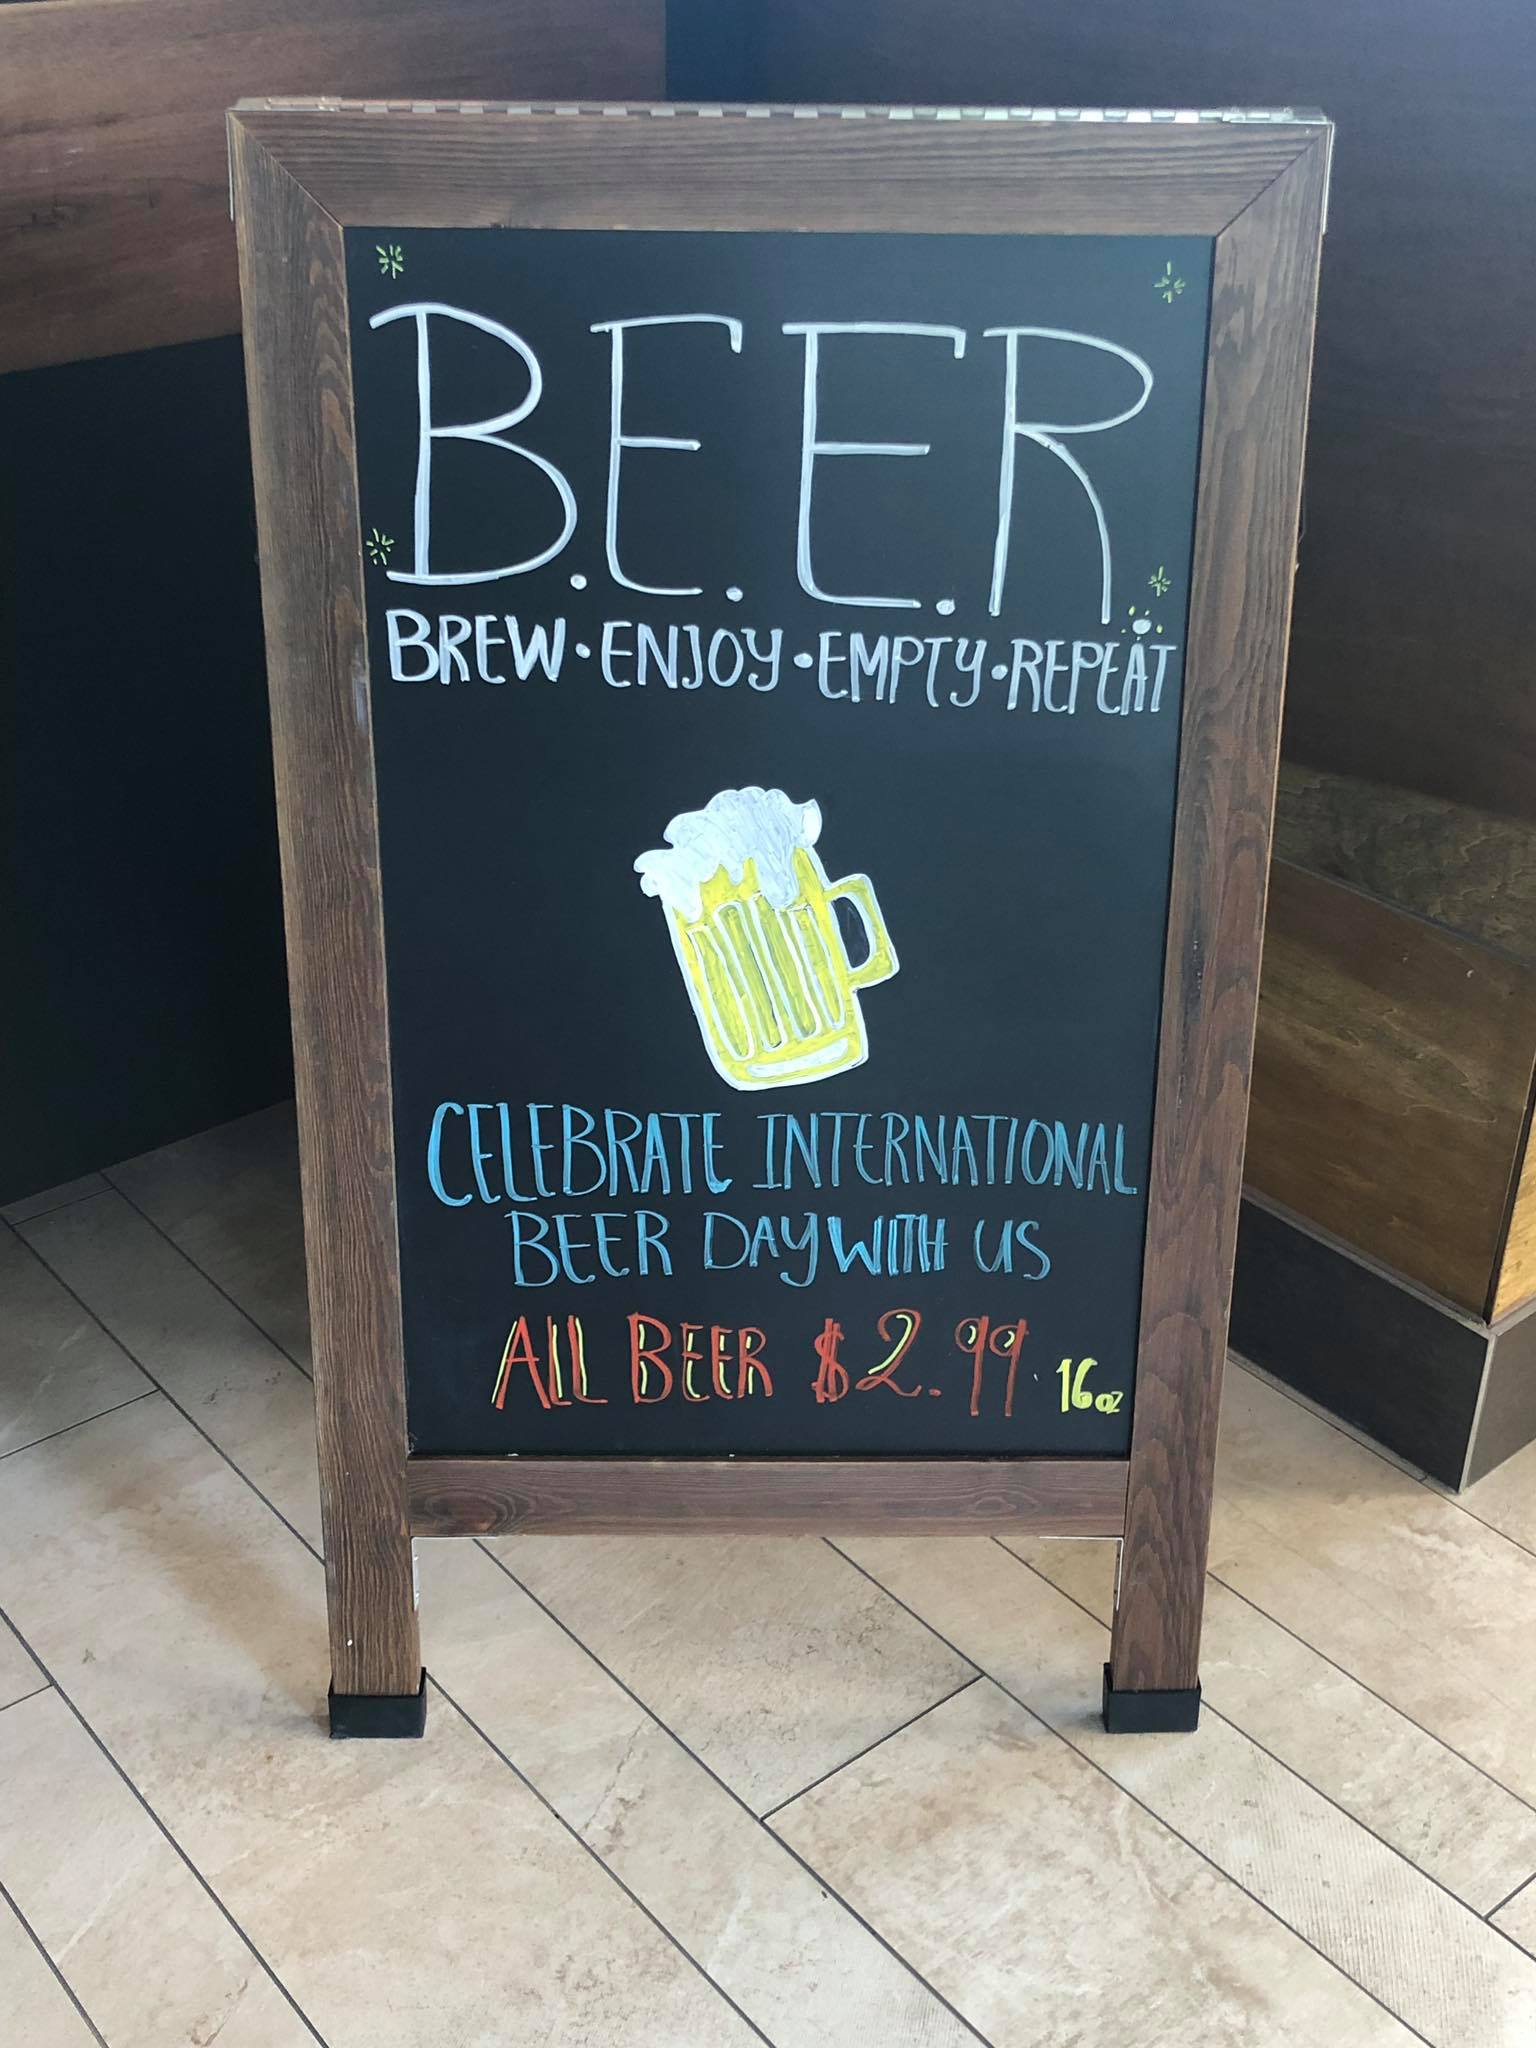 B.E.E.R.
BREW • ENJOY • EMPTY • REPEAT
CELEBRATE INTERNATIONAL
BEER DAY WITH US
ALL BEER $2.99 16oz